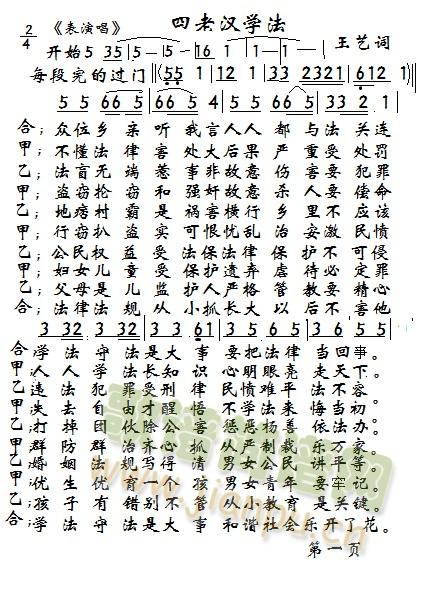 四老汉学法
2/4 《表演唱》
王艺词
开始5 35 | 5 - | 5 - | 16 1 | 1 - | 1 - |
每段完的过门 ‖(55 1 | 12 1 | 33 2321 | 612 1) |
5 5 | 66 5 | 66 5 | 4 5 | 5 5 | 66 5 | 33 2 | 2 1 |
合；众位乡亲听我言人人都与法关连
甲；不懂法律害处大后果严重受处罚
乙；法盲无端惹事非故意伤害要犯罪
甲；盗窃抢窃和强奸故意杀人要偿命
乙；地痞村霸是祸害横行乡里不应该
甲；行窃扒盗实可恨忧乱治安激民愤
乙；公民权益受法保法律保护不可侵
甲；妇女儿童受法保护遗弃虐待必定罪
乙；父母是儿监护人严格管教要精心
合；法律法规从小抓长大以后不害他
3 32 | 3 32 | 3 3 | 61 1 | 3 3 | 6 5 | 3 6 | 5 5 |
合；学法守法是大事要把法律当回事。
甲；人人学法长知识心明眼亮走天下。
乙；违法犯罪受刑律民愤难平法不容。
甲；失去自由才醒悟不学法来悔当初
乙；打掉团伙除公害惩恶杨善依法办。
甲；群防群治齐心抓从严制裁乐万家。
乙；婚姻法规写得清男女公民讲平等
甲；优生优育一个孩男女青年要牢记。
乙；孩子有错别不管从小教育是关键。
合；学法守法是大事和谐社会乐开了花。
第一页